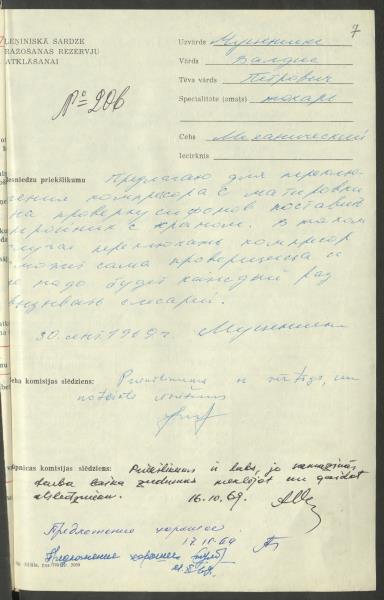 7
ĻEŅINISKĀ SARDZE
RAŽOŠANAS REZERVJU
ATKLĀŠANAI
№ 20б
Uzvārds
Vārds Валдис
Tēva vārds Петрович
Specialitāte (amats) токарь
Cehs Механический
Iecirknis
Iesniedzu priekšlikumu Предлагаю для переключе-
ния компресора с матировки
на проверку сифонов поставить
тройник с краном. В таком
случае переключать компресор
может сама проверщица и
не надо будет каждый раз
вызывать слесарей.
30. 1969 г.
Ceha komisijas slēdziens: Priekšlikums ir vērtīgs, un
Rūpnīcas komisijas slēdziens: Priekšlikums ir labs, jo samazinās
darba laika zudumus meklējot un gaidot
atslēdznieku. 16.10.69.
Предложение хорошее
17.10.69
Предложение хорошее